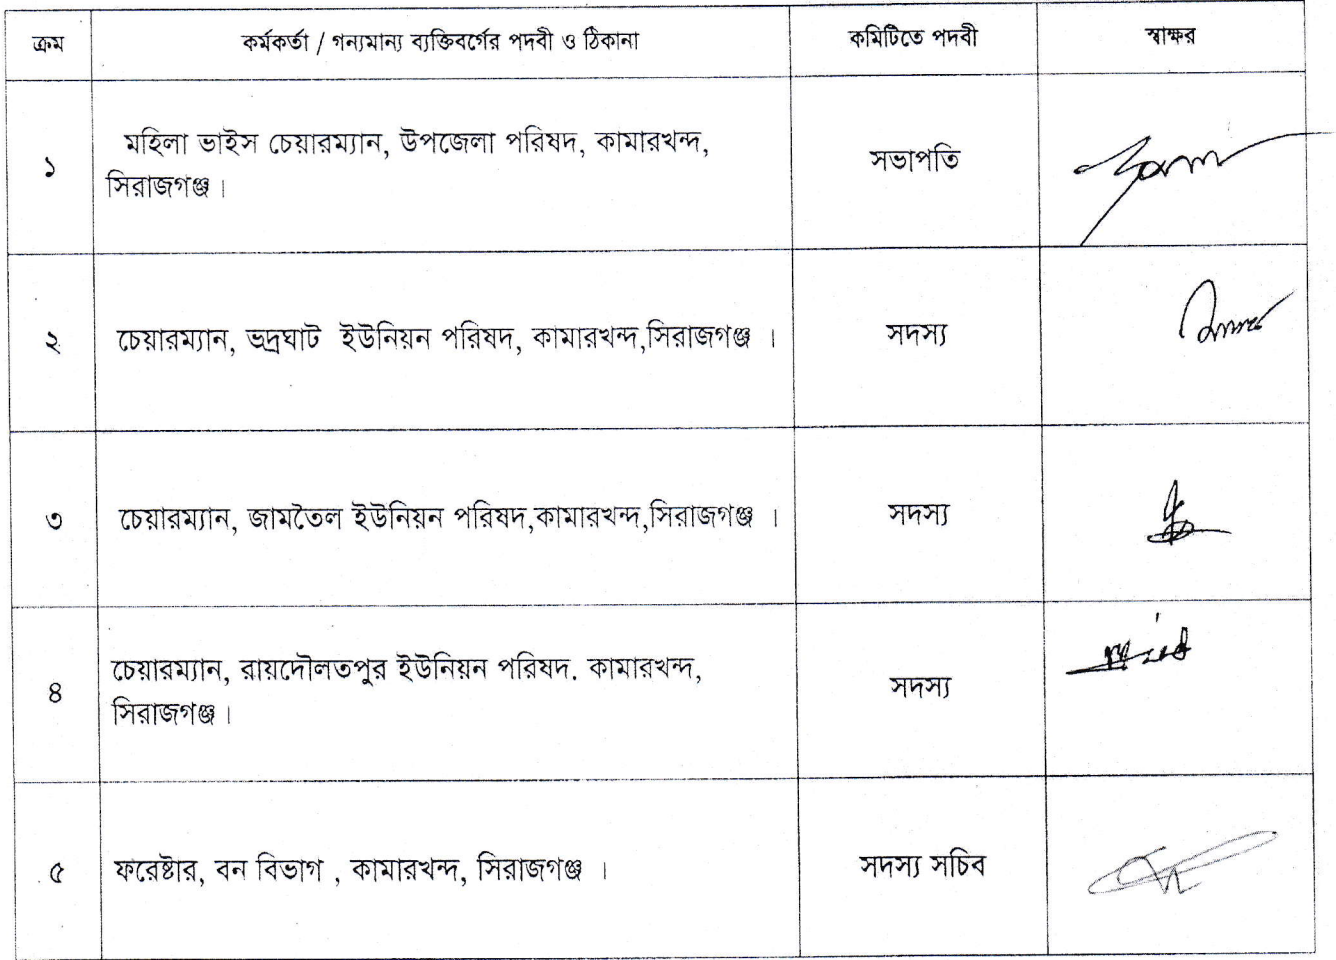 ক্রম কর্মকর্তা / গন্যমান্য ব্যক্তিবর্গের পদবী ও ঠিকানা কমিটিতে পদবী স্বাক্ষর
১ মহিলা ভাইস চেয়ারম্যান, উপজেলা পরিষদ, কামারখন্দ, সভাপতি
সিরাজগঞ্জ।
২ চেয়ারম্যান, ভদ্রঘাট ইউনিয়ন পরিষদ, কামারখন্দ,সিরাজগঞ্জ । সদস্য
৩ চেয়ারম্যান, জামতৈল ইউনিয়ন পরিষদ,কামারখন্দ,সিরাজগঞ্জ । সদস্য
৪ চেয়ারম্যান, রায়দৌলতপুর ইউনিয়ন পরিষদ. কামারখন্দ, সদস্য
সিরাজগঞ্জ।
৫ ফরেষ্টার, বন বিভাগ , কামারখন্দ, সিরাজগঞ্জ । সদস্য সচিব